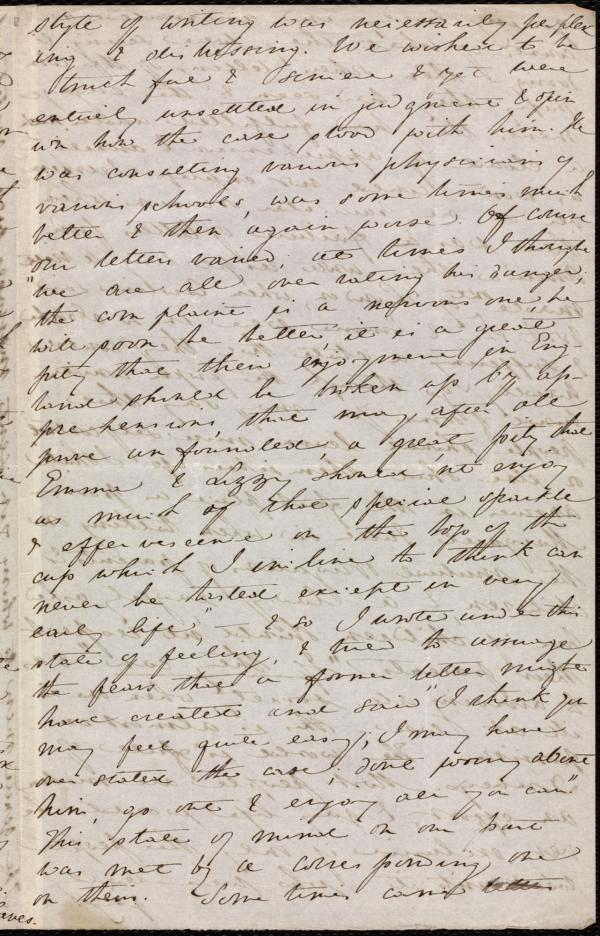 style of writing was necessarily perplex
ing & distressing. We wished to be
truthful & sincere & yet were
entirely unsettled in judgment & opin
ion how the case stood with him. He
was consulting various physicians of
various schools, was some times much
better & then again worse. Of course
our letters varied; at times I thought
"we are all over rating his danger,
the complaint is a nervous one, he
will soon be better, it is a great
pity that their enjoyment in Eng-
land should be broken up by ap-
prehensions, that may, after all
prove unfounded, a great pity that
Emma & Lizzy should'nt enjoy
as much of that special sparkle
& effervescence on the top of the
cup which I incline to think can
never be tasted except in very
early life," — & so I wrote under this
state of feeling, & tried to assuage
the fears that a former letter might
have created and said "I think you
may feel quite easy; I may have
over stated the case; dont worry about
him, go out & enjoy all you can"
This state of mind on our part
was met by a corresponding one
on theirs. Some times came